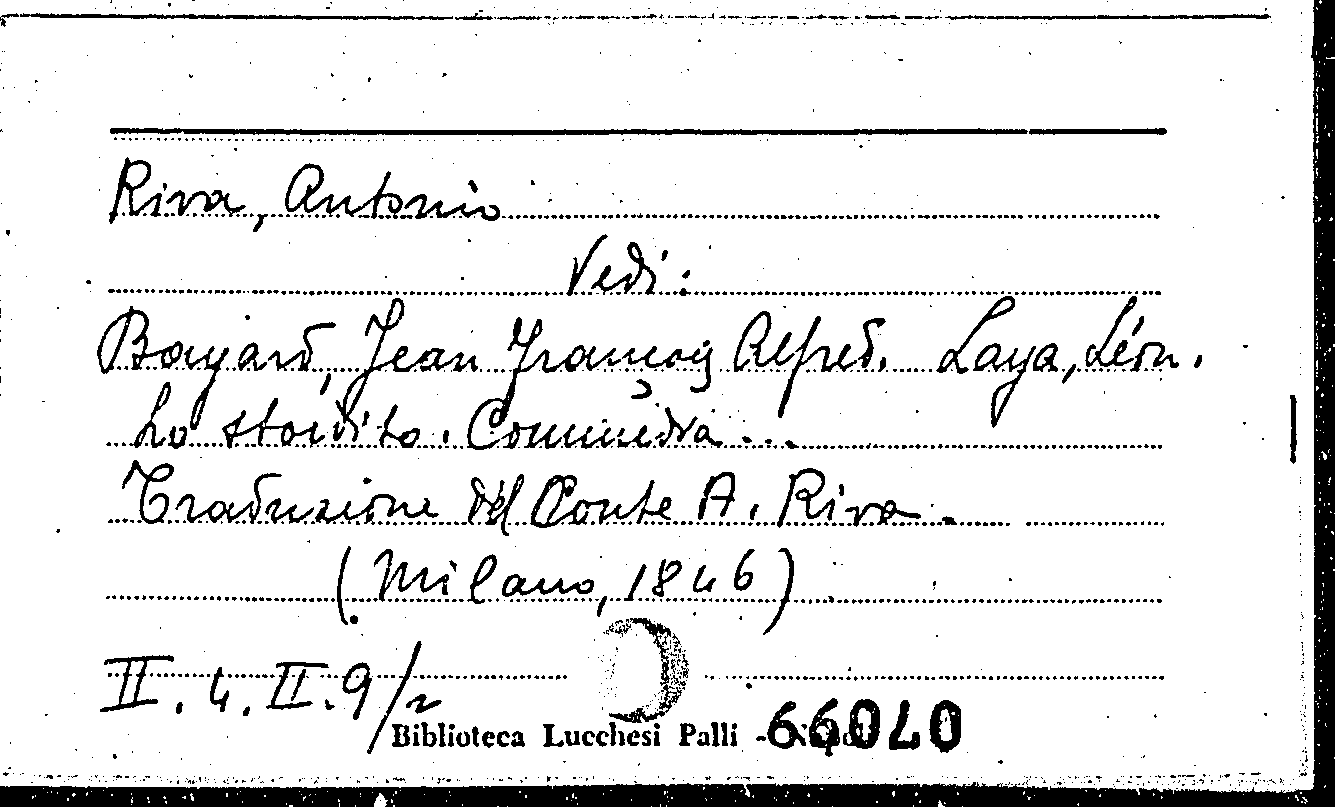 Riva, Antonio
Vedi:
Bayard, Jean François Alfred. Laya, Léon.
Lo stordito. Commedia...
Traduzione del Conte A. Riva.
(Milano, 1846)
II. 4. II. 9/2
Biblioteca Lucchesi Palli -